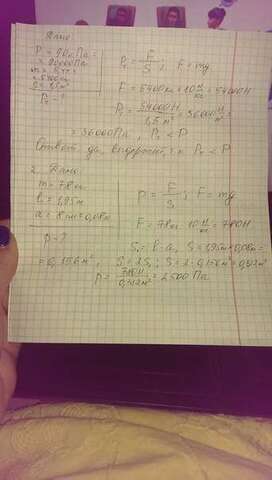 Дано:
P = 90кПа =
= 90000Па
m = 5,4т =
= 5400кг
S = 1,5м²
P₁ - ?
P₁ = F/S ; F = mg
F = 5400кг · 10 Н/кг = 54000Н
P₁ = 54000Н / 1,5м² = 36000 Н/м² =
= 36000Па, P₁ < P
Ответ: да, выдержит, т.к. P₁ < P
2. Дано:
m = 78кг
b = 1,95м
a = 8см = 0,08м
p - ?
p = F/S ; F = mg
F = 78кг · 10 Н/кг = 780Н
S₁ = b · a, S = 1,95м · 0,08м =
= 0,156м², S = 2S₁ ; S = 2 · 0,156м² = 0,312м²
p = 780Н / 0,312м² = 2500Па